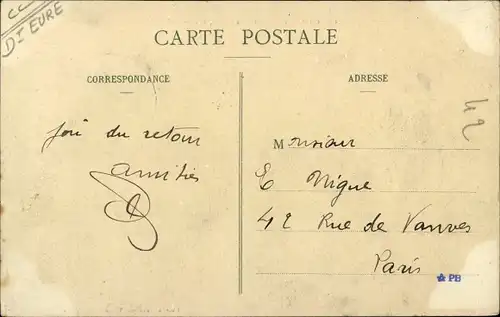 CC
DT EURE
CARTE POSTALE
CORRESPONDANCE
ADRESSE
42
Joie du retour
amitiés
Monsieur
E Nigue
42 Rue de Vanves
Paris
PB